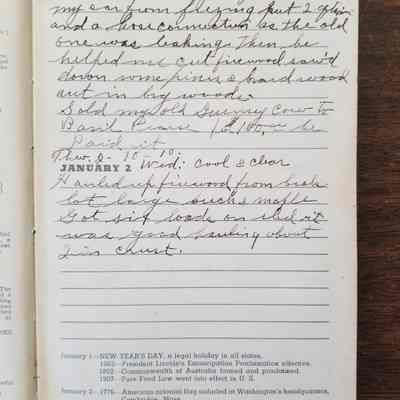 my car from freezing put 2 glycin
and a hose connection as the old
one was leaking. Then he
helped me cut firewood saw'd
down some pines & hard wood
out in big woods.
Sold my old Guernsey Cow to
Basil he
Paid it
Ther. 0 - 10 - 10.
JANUARY 2 Wed. Cool & clear
Hauled up firewood from back
lot large birch & maple
Got six loads on sled it
was good hauling about
2 in crust.
January 1—NEW YEAR'S DAY, a legal holiday in all states.
1863—President Lincoln's Emancipation Proclamation effective.
1902—Commonwealth of Australia formed and proclaimed.
1907—Pure Food Law went into effect in U. S.
January 2—1776—American colonial flag unfurled in Washington's headquarters,
Cambridge, Mass.